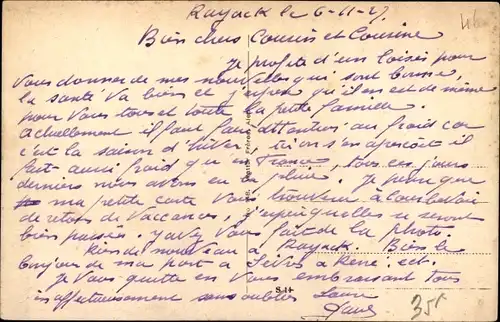 Rayack le 6-11-27.
Bien chers Cousin et Cousine
Je profite d'un loisir pour
vous donner de mes nouvelles qui sont bonne,
la santé va bien et j'espère qu'il en est de même
pour vous tous et toute la petite famille
actuellement il faut faire attention au froid car
c'est la saison d'hiver, et on s'en aperçoit il
fait aussi froid qu'en France, tous ces jours
derniers nous avons eu la pluie. Je pense que
ma petite carte vous trouvera à Courbevoie
de retour de vaccances, j'espère qu'elles se seront
bien passées. Y avez vous fait de la photo.
Rien de nouveau à Rayack. Bien le
bonjour de ma part à Sèvres à René; ect.
Je vous quitte en vous embrassant tous
bien affectueusement sans oublier
S-H
35f